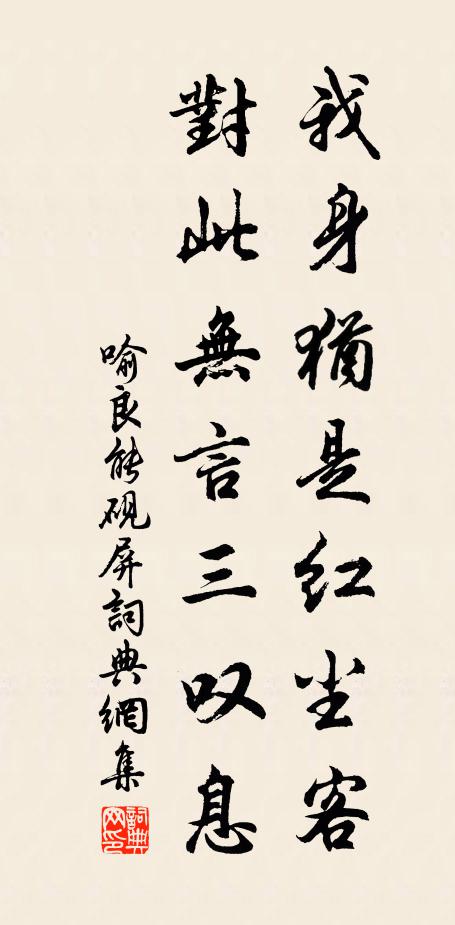 我身猶是红尘客
對此無言三叹息
喻良能硯屏詞典網集
詞典网印